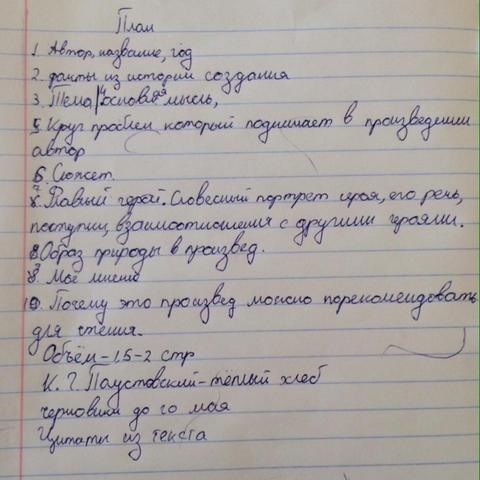 План
1. Автор, название, год
2. факты из истории создания
3. Тема, 4. основная мысль,
5. Круг проблем который поднимает в произведении
автор
6. Сюжет
7. Главный герой. Словесный портрет героя, его речь,
поступки, взаимоотношения с другими героями.
8. Образ природы в произвед.
9. Моё мнение
10. Почему это произвед можно порекомендовать
для чтения.
Объём - 1,5-2 стр
К. Г. Паустовский - тёплый хлеб
черновики до 10 мая
Цитаты из текста